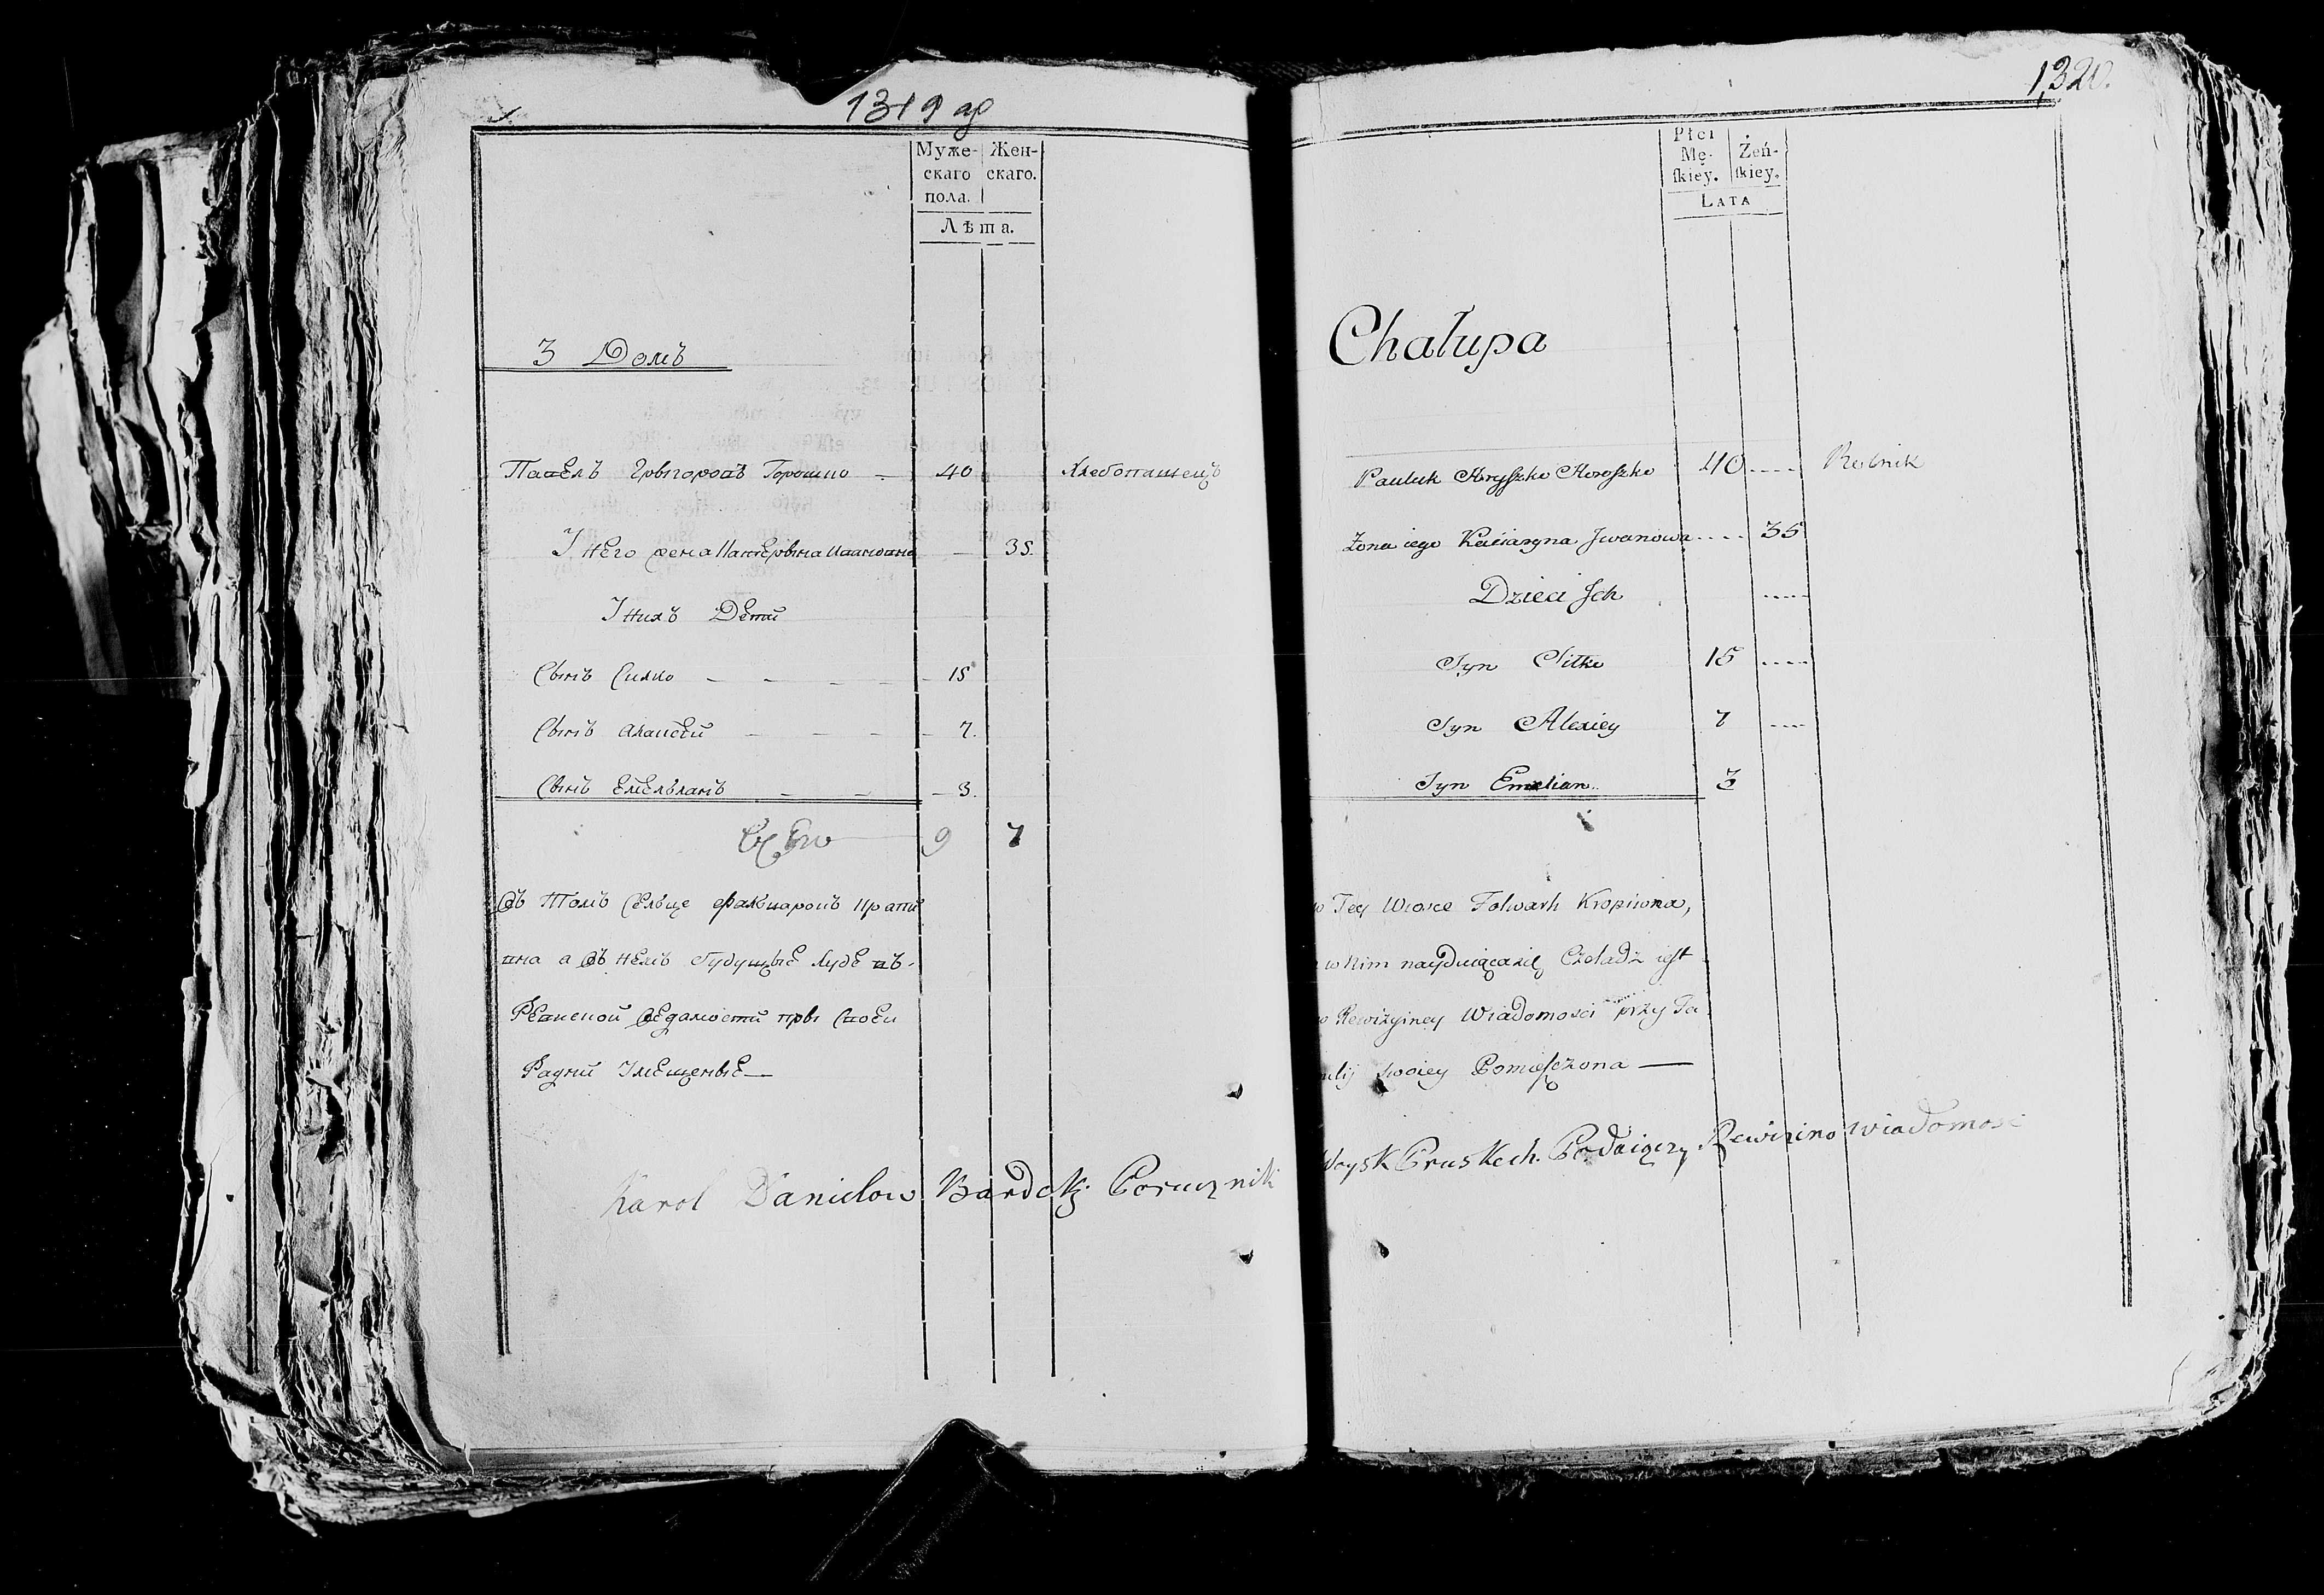 1319 об
Муже-
скаго
пола.
Жен-
скаго.
Лѣта.
3 Домъ
Павелъ Грыгоровъ Горошко — 40 Хлебопашецъ
У него жена Катерына Ивановна — 35.
У нихъ Дети
Сынъ Силко — — — — 15
Сынъ Алексей — — — — 7.
Сынъ Емельянъ — — — 3.
9 7
Въ томъ сельце фальваровъ Крапи
вна а въ немъ будущые люде въ-
Ревиской ведамости пры своеи
Karol Danielow Bardcki Porucznik
1,320.
Płci
Mę-
ſkiey.
Żeń-
ſkiey.
LATA
Chałupa
Pauluk Hryſzko Horoſzko 40 .... Rolnik
Żona iego Kaciaryna Jwanowa .... 35
Dzieci Jch ....
Syn Siłko 15 ....
Syn Alexiey 7 ....
Syn Emelian 3
w Tey Wiosce Folwark Kropiwna,
w Nim nayduiącasię Czeladź ieſt
w Rewizyiney Wiadomosci przy Fa
milij swoiey Pomieſczona —
Woysk Pruskich Podaiący Rewizino wiadomosc